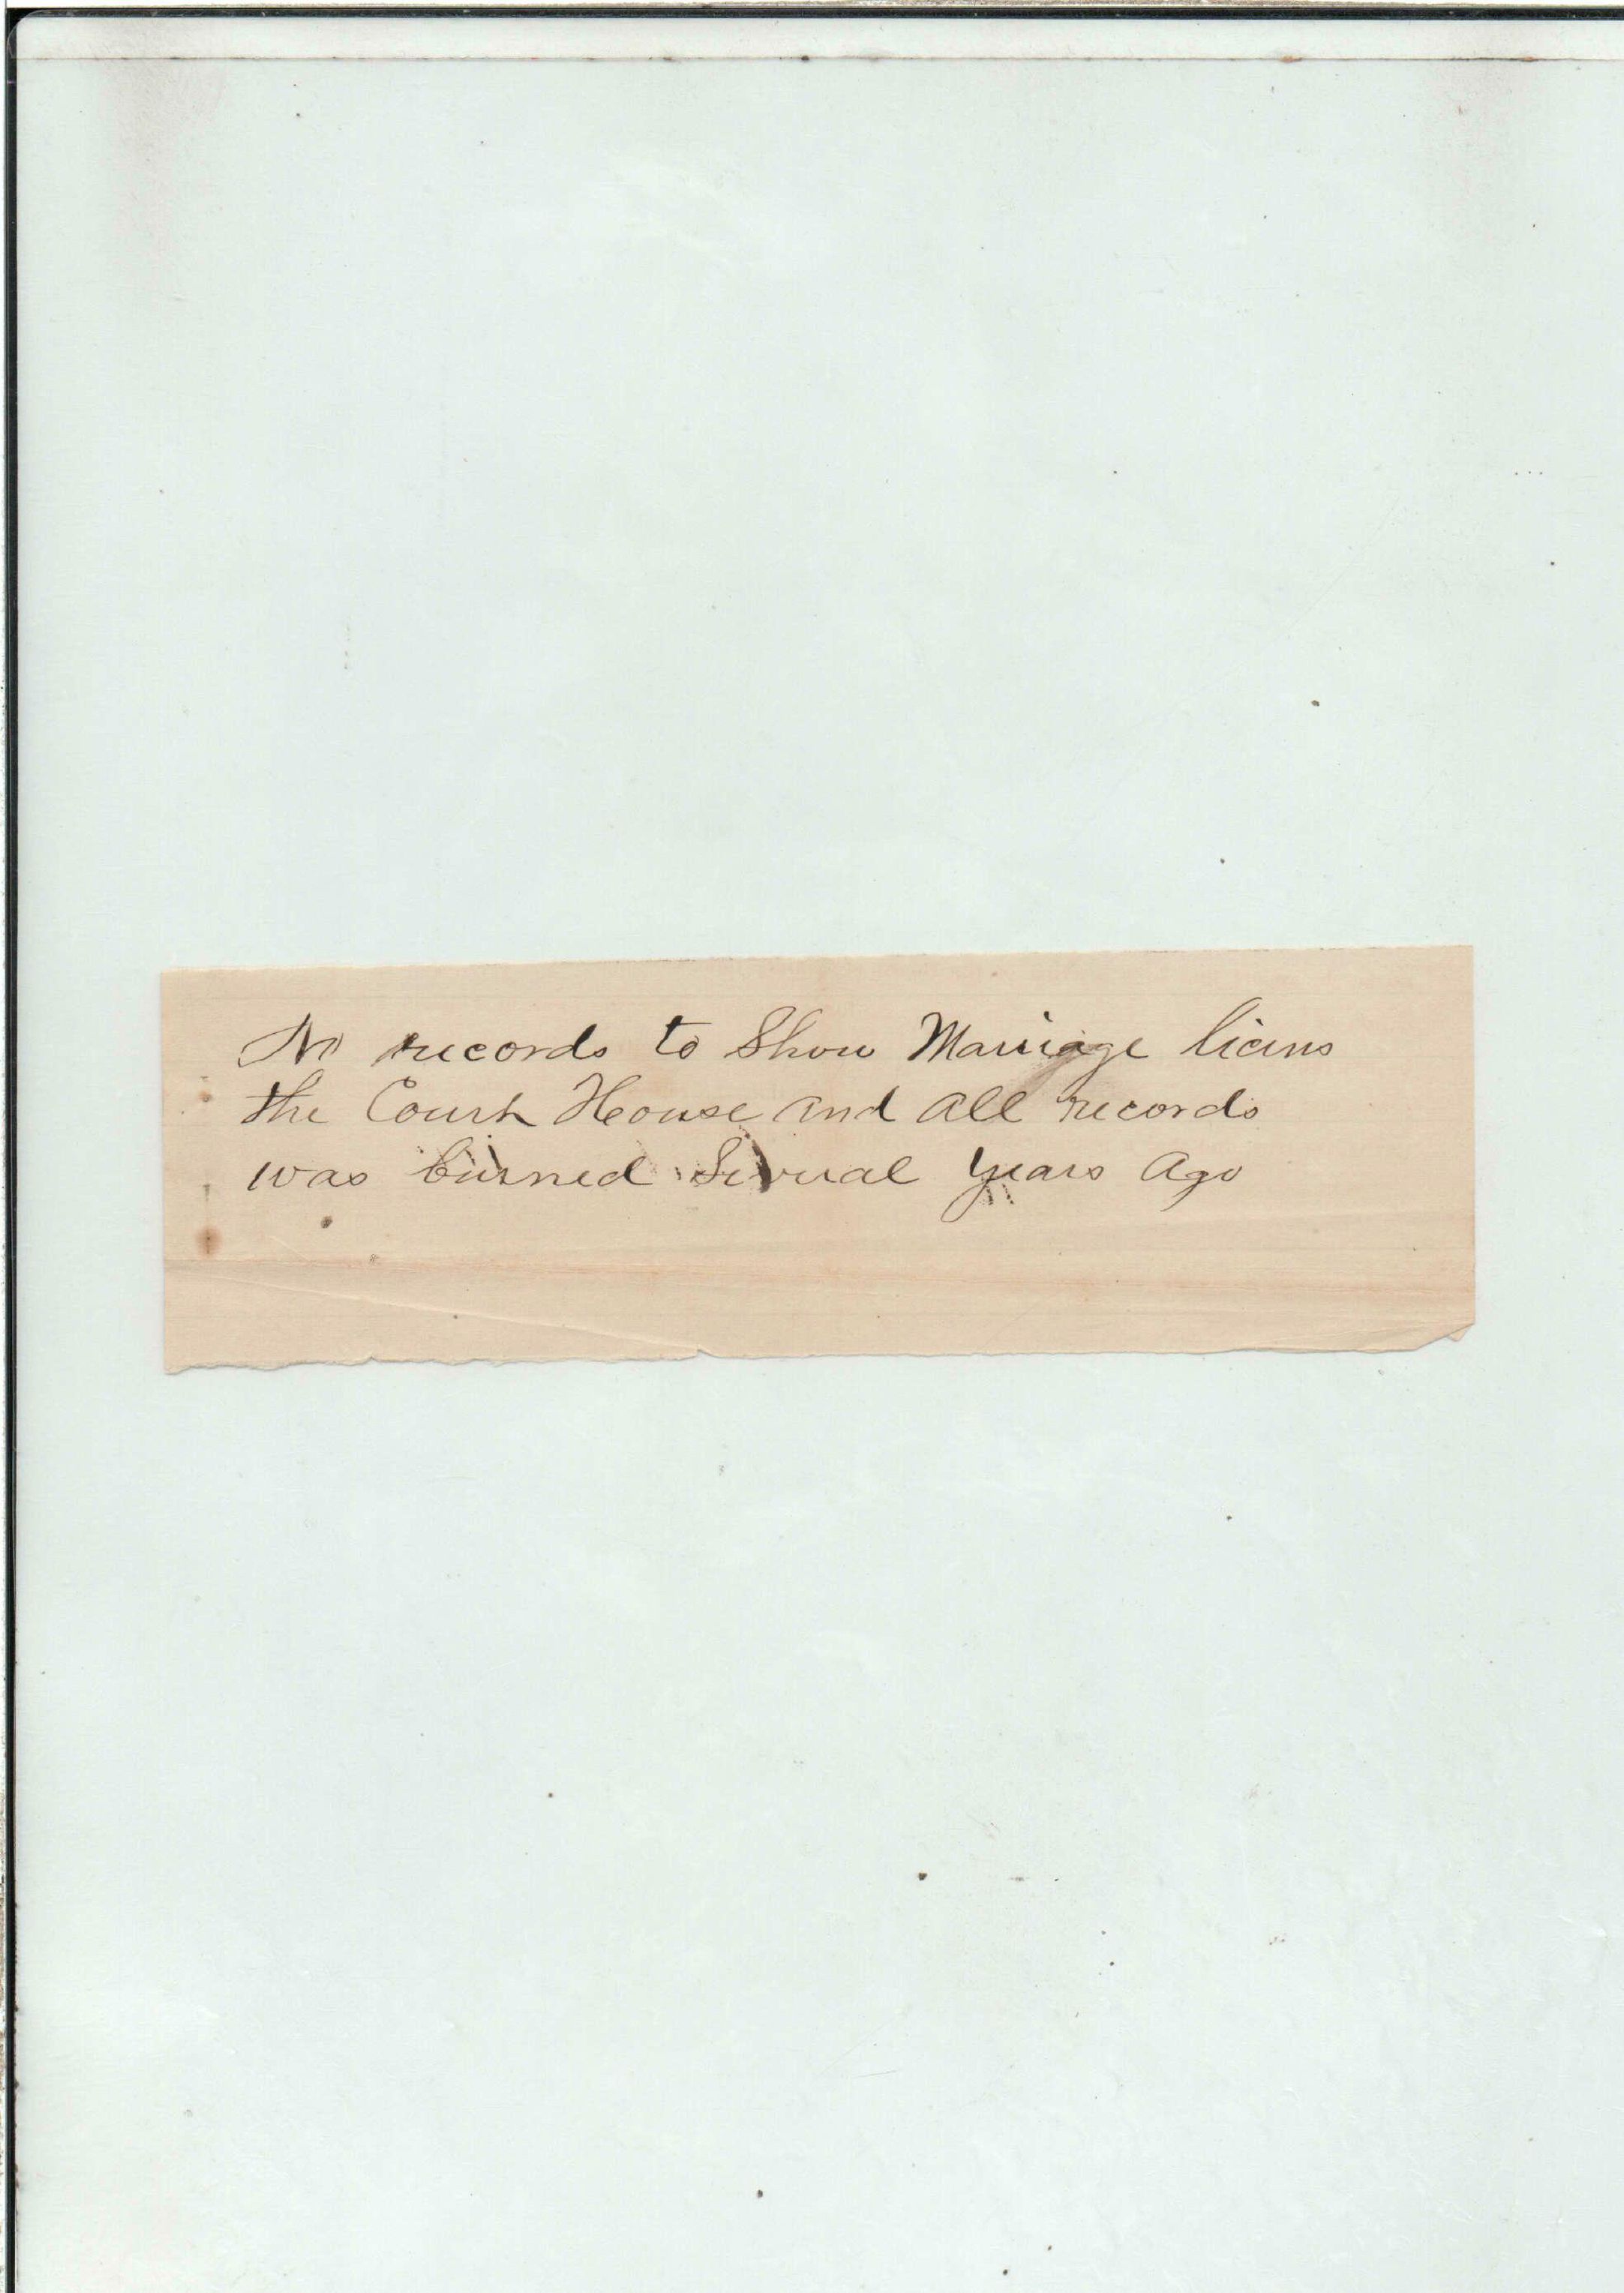 No records to Show Marriage licens
the Court House and all records
was burned Several years ago